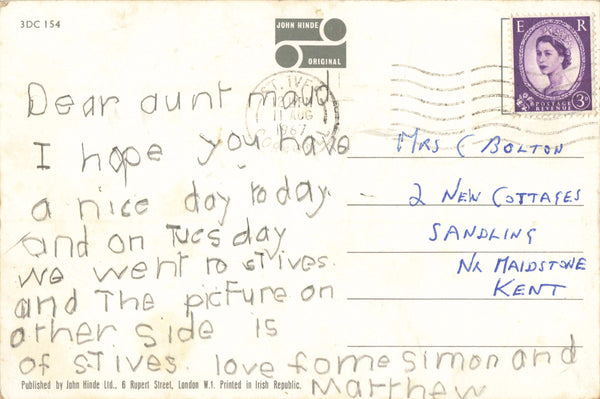 3DC 154
JOHN HINDE
ORIGINAL
E R
POSTAGE
REVENUE
3D
ST. IVES
11 AUG
1967
Dear aunt maud
I hope you have
a nice day today
and on Tuesday
we went to st ives.
and The picture on
other side is
of st ives. love fome simon and
Matthew
MRS C BOLTON
2 NEW COTTAGES
SANDLING
NR MAIDSTONE
KENT
Published by John Hinde Ltd., 6 Rupert Street, London W.1. Printed in Irish Republic.